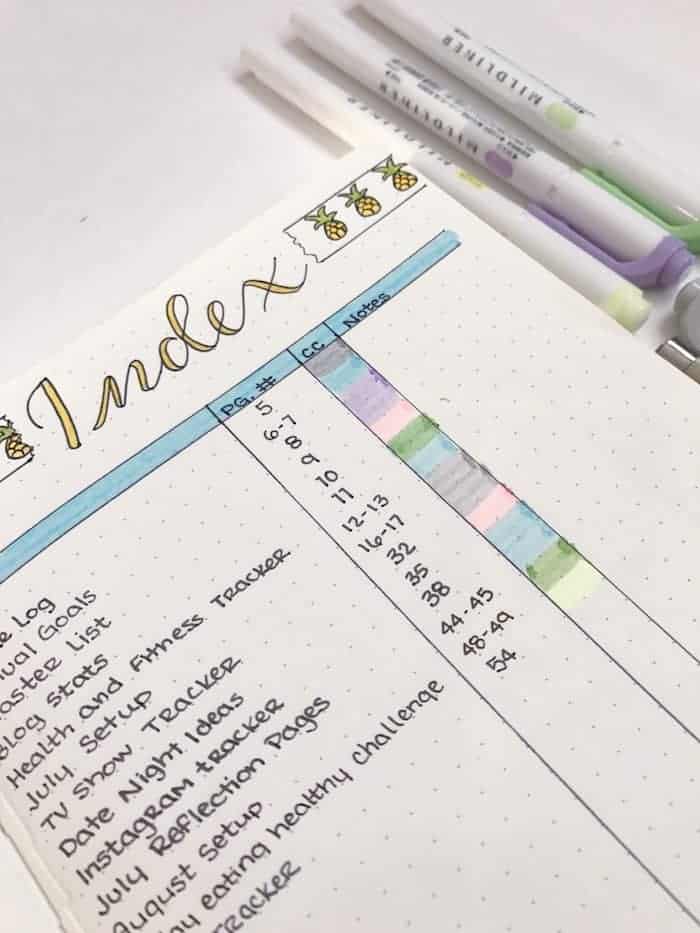 MILDLINER
MILDLINER
Index
PG. #
CC
Notes
Log
Goals
List
Blog Stats
Health and Fitness Tracker
July Setup
TV Show Tracker
Date Night Ideas
Instagram tracker
July Reflection Pages
August Setup
eating healthy challenge
Tracker
5
6-7
8
9
10
11
12-13
16-17
32
35
38
44-45
48-49
54